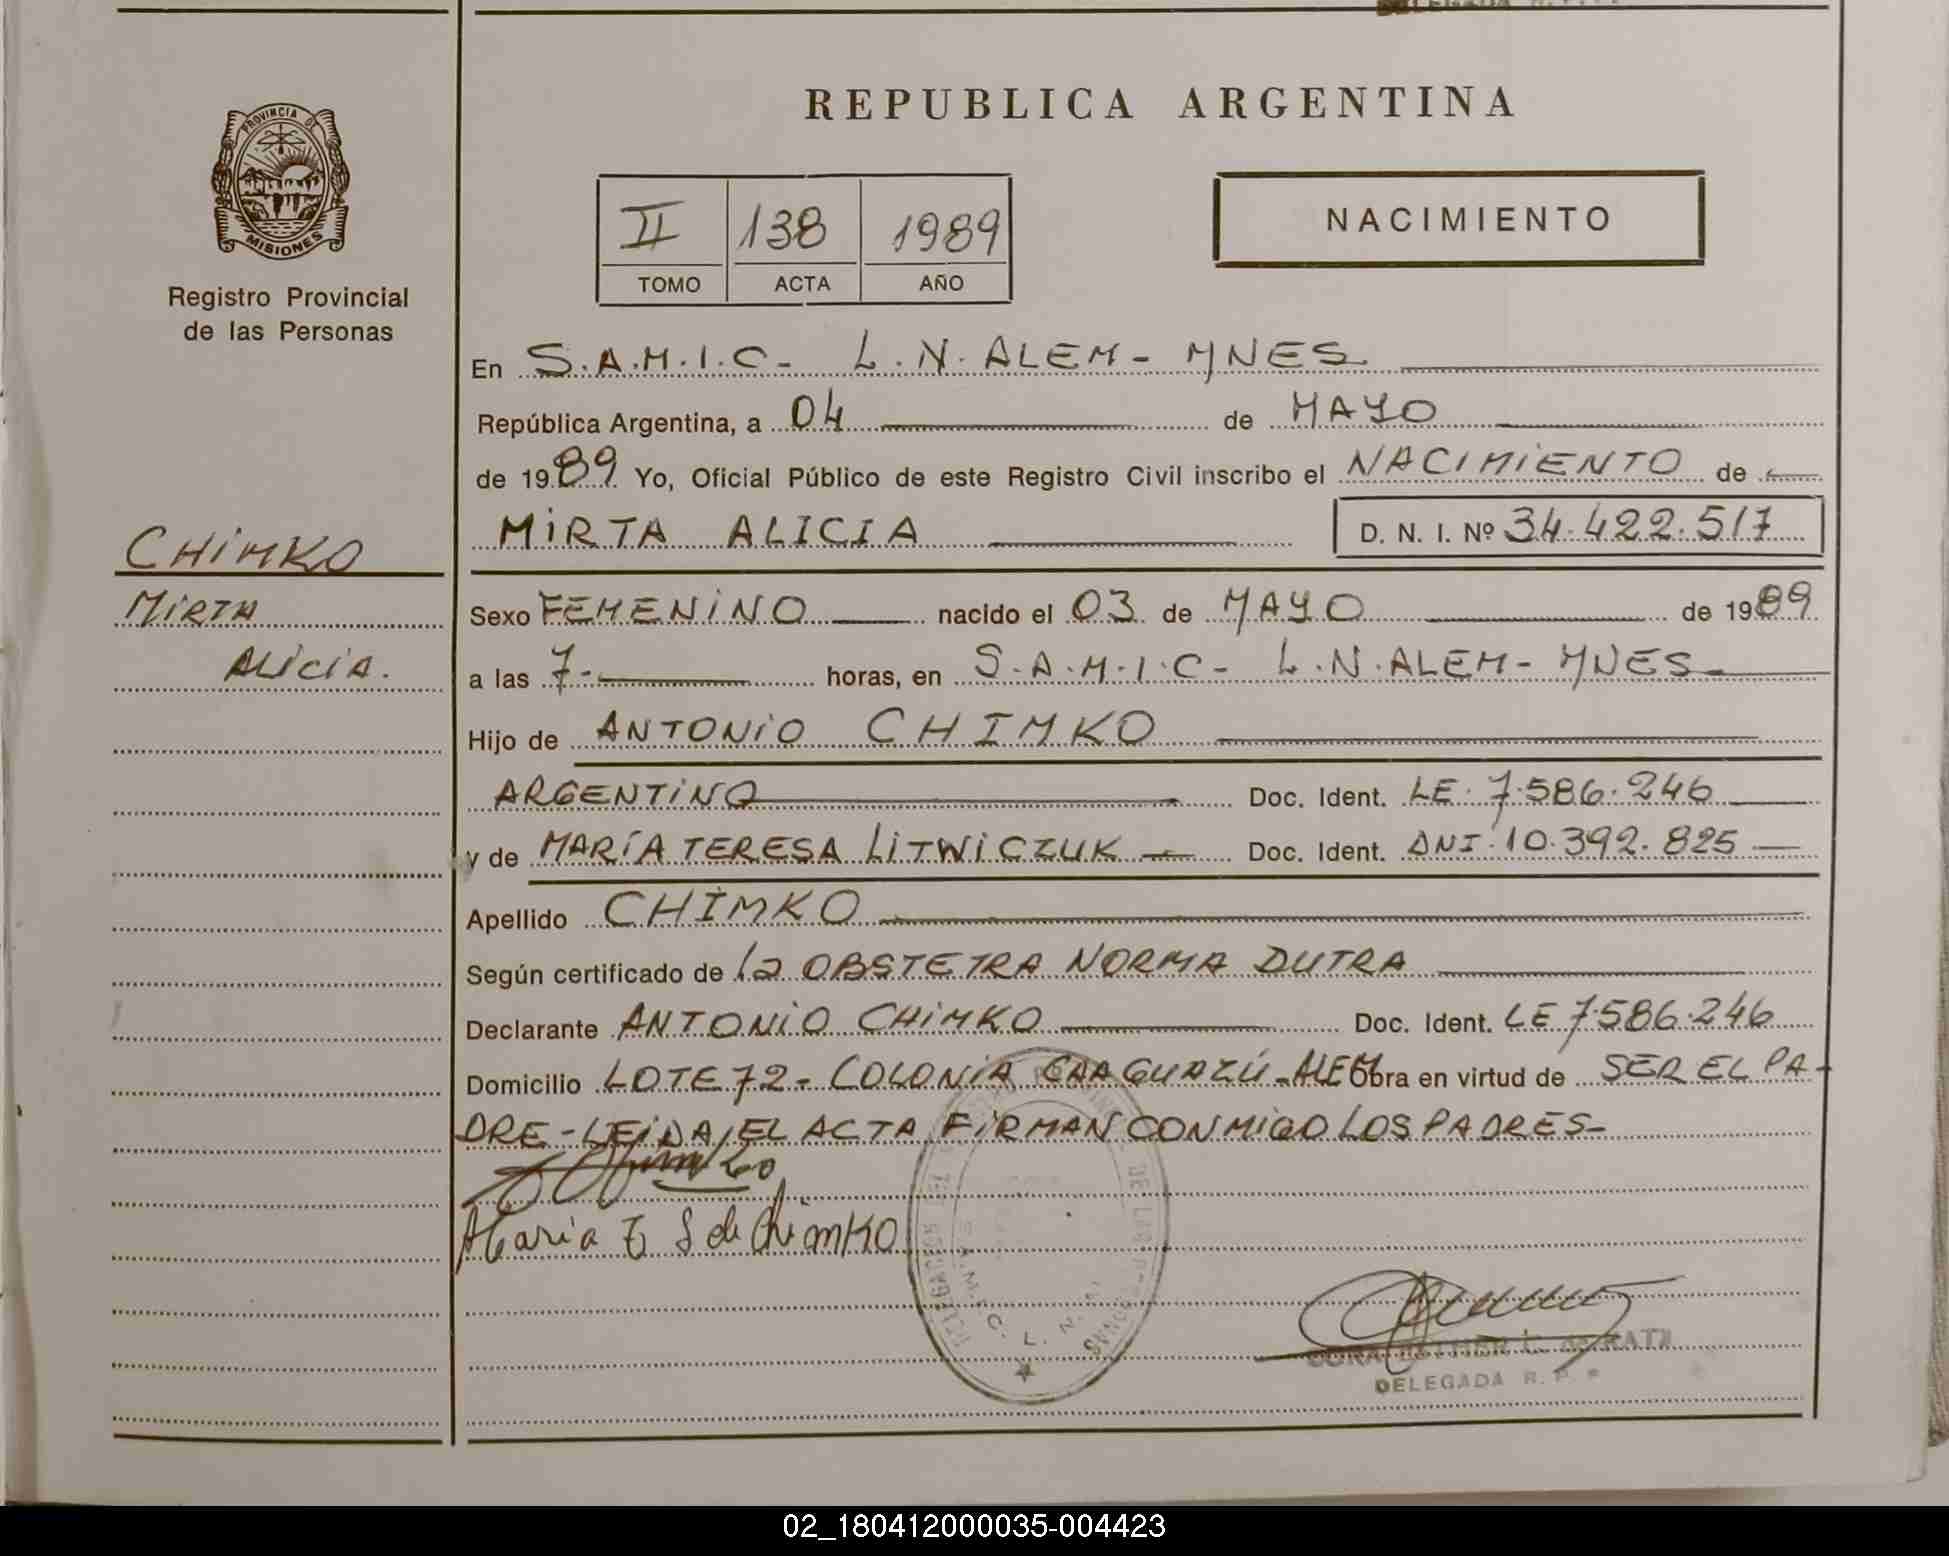 REPUBLICA ARGENTINA
PROVINCIA DE
MISIONES
Registro Provincial
de las Personas
NACIMIENTO
II 138 1989
TOMO ACTA AÑO
En S.A.M.I.C- L.N. ALEM- MNES
República Argentina, a 04 de MAYO
de 1989 Yo, Oficial Público de este Registro Civil inscribo el NACIMIENTO de
MIRTA ALICIA D. N. I. Nº 34.422.517
CHIMKO
MIRTA
ALICIA.
Sexo FEMENINO nacido el 03 de MAYO de 1989
a las 7- horas, en S.A.M.I.C- L.N. ALEM- MNES
Hijo de ANTONIO CHIMKO
ARGENTINO Doc. Ident. LE. 7.586.246
y de MARÍA TERESA LITWICZUK Doc. Ident. DNI. 10.392.825
Apellido CHIMKO
Según certificado de la OBSTETRA NORMA DUTRA
Declarante ANTONIO CHIMKO Doc. Ident. LE 7.586.246
Domicilio LOTE 72- COLONIA CAAGUAZÚ-ALEM Obra en virtud de SER EL PA-
DRE-LEIDA EL ACTA FIRMAN CONMIGO LOS PADRES-
Maria T de Chimko
DELEGADA R. P.
02_180412000035-004423